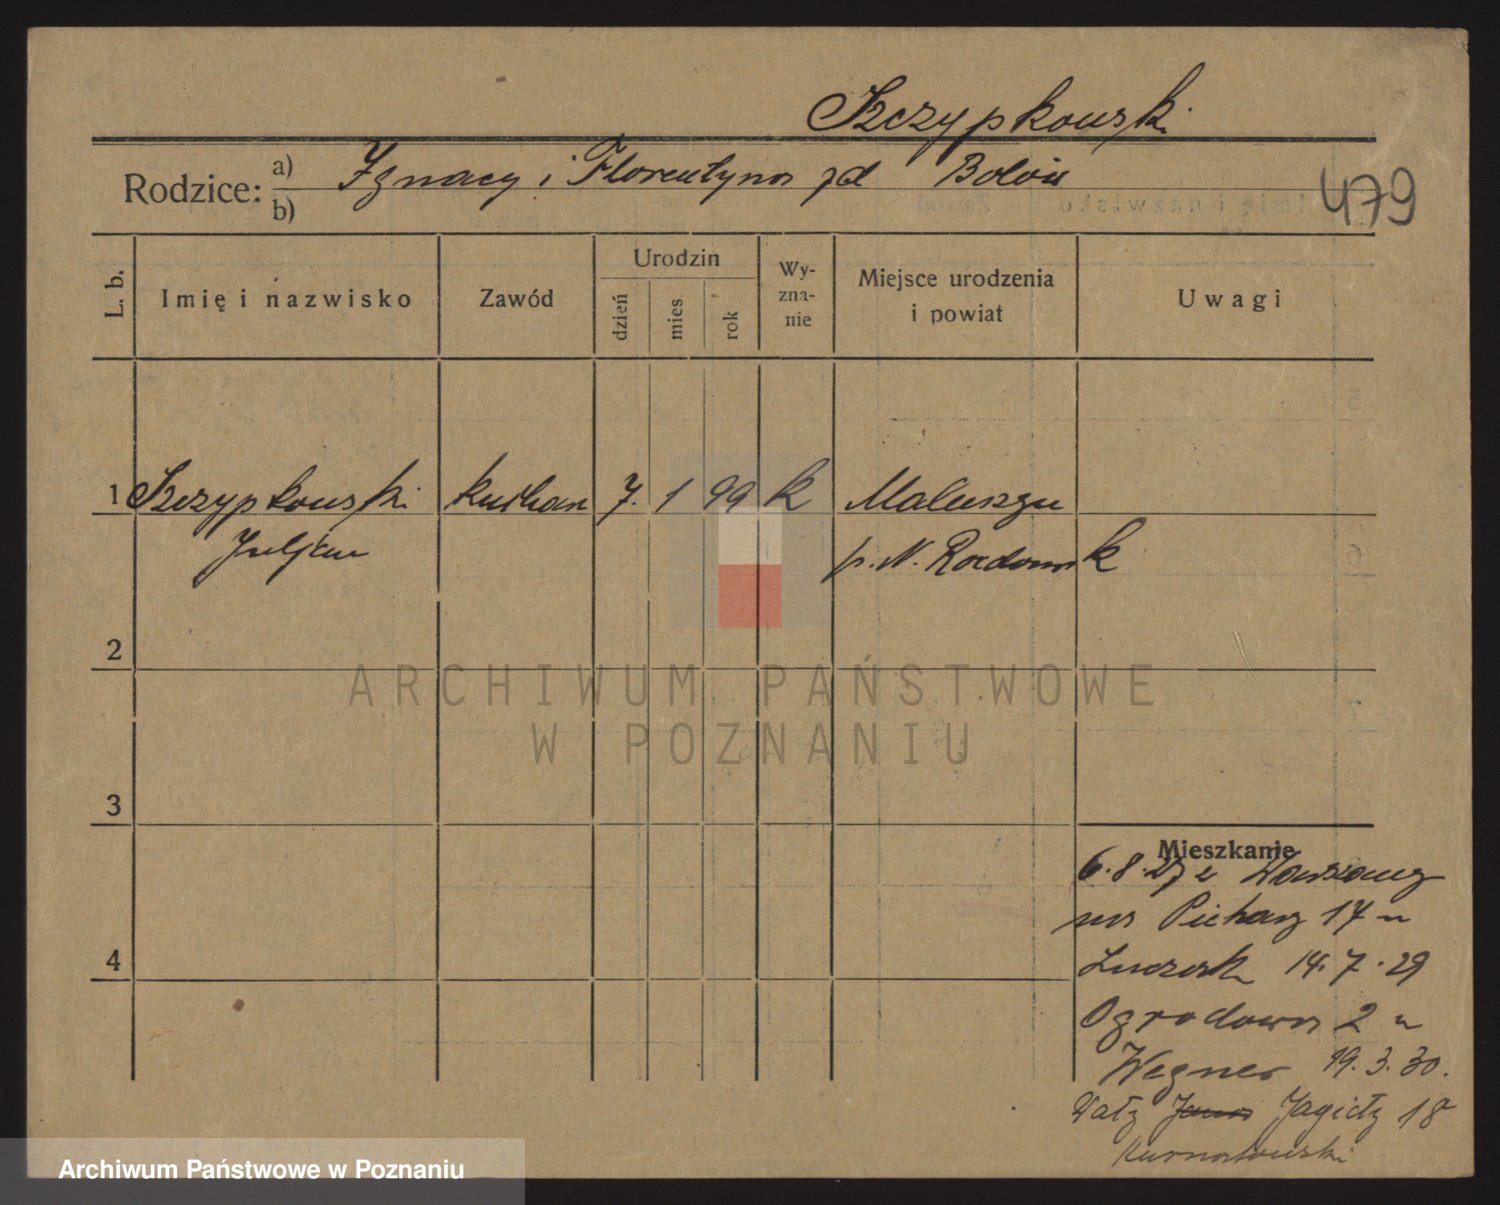 Szczypkowski
Rodzice: a) Ignacy i Florentyna zd Boboń
b)
479
L. b.
Imię i nazwisko
Zawód
Urodzin
dzień
mies
rok
Wy-
zna-
nie
Miejsce urodzenia
i powiat
Uwagi
1 Szczypkowski kucharz 7. 1 99 k Maluszyn
Juljan p. N. Radomsk
2
3
4
Mieszkanie
6.8.27 z Warszawy
na Piekary 17 u
14.7.29
Ogrodowa 2 u
Wegner 19.3.30.
Wały Jana Jagiełły 18
Kurnatowski
ARCHIWUM PAŃSTWOWE
W POZNANIU
Archiwum Państwowe w Poznaniu